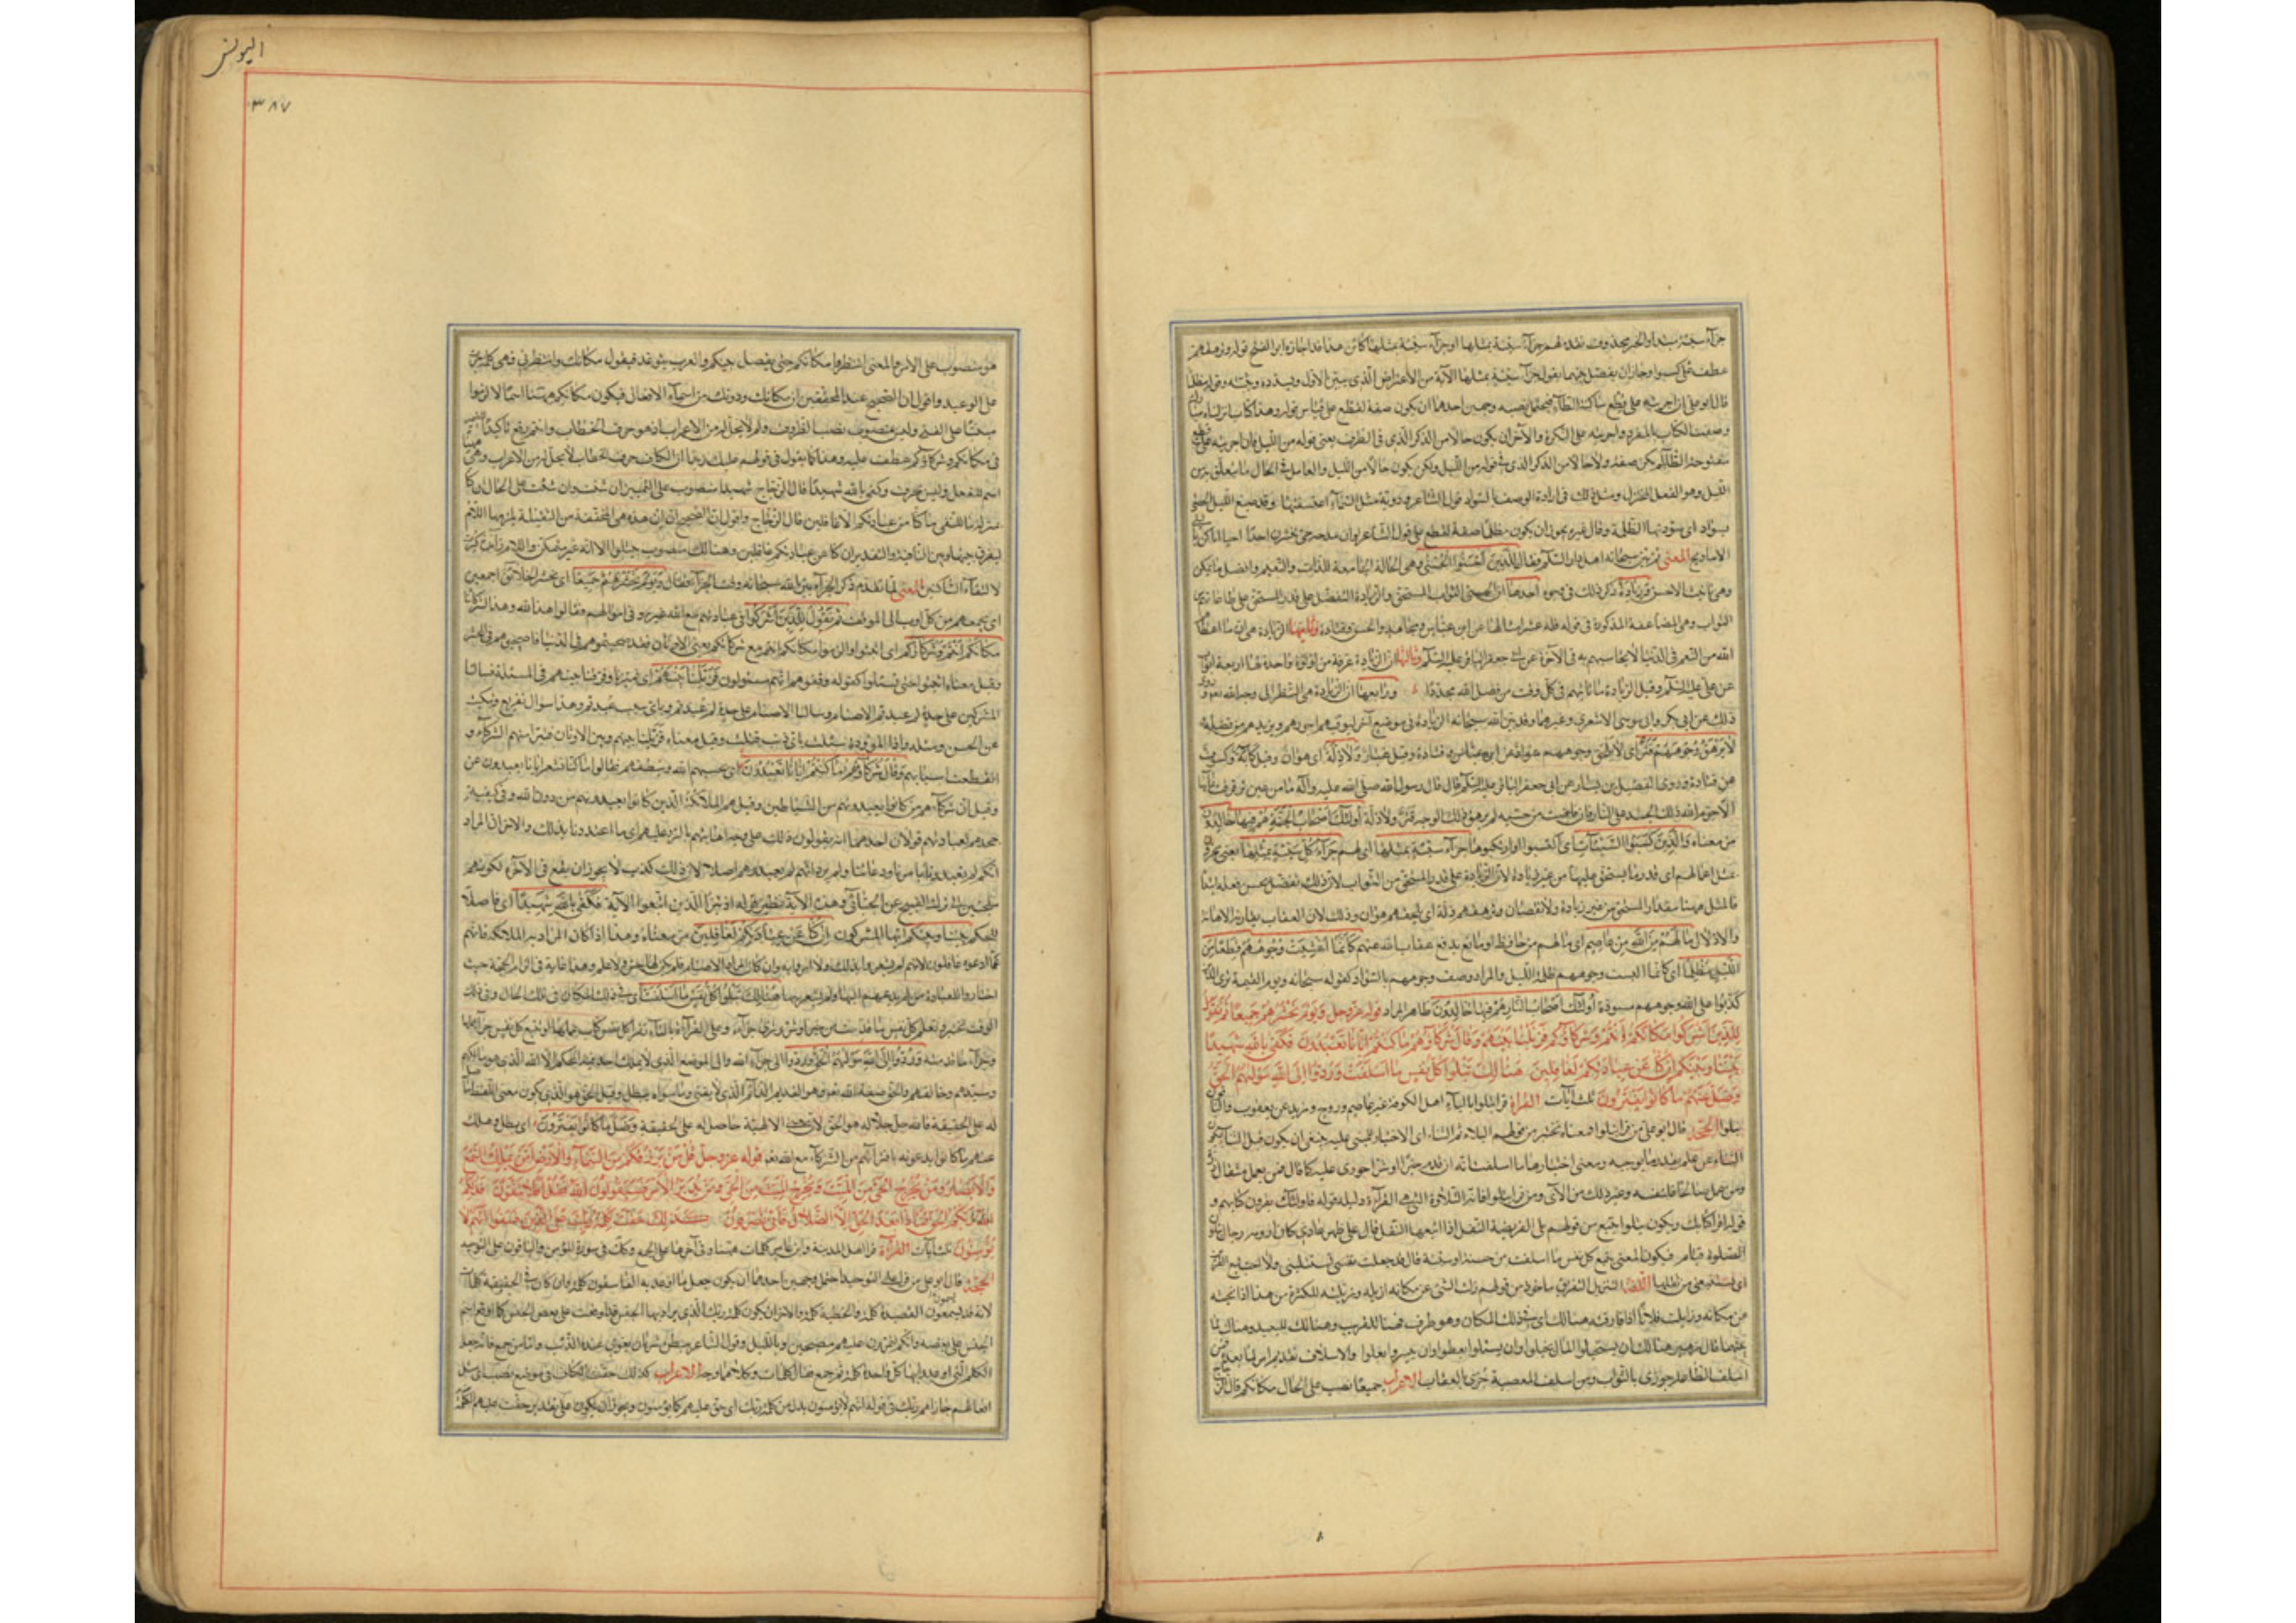 جزآء سيئة مبتدأ والخبر محذوف تقديره لهم جزآء سيئة بمثلها او جزآء سيئة بمثلها كائن هذا قد اجازه ابو الفتح قوله وترهقهم
عطف على كسبوا وجاز ان يفصل بينهما بقوله جزآء سيئة بمثلها الآية من الأعتراض الّذي يبيّن الأول ويسدده
قال ابو علي ان اجريته على قطع ساكنة الطآء فيحتمل نصبه وجهين احدهما ان يكون صفة لقطع على قياس قوله وهذا كتاب انزلناه مبارك
وصفت الكتاب بالمفرد واجريته على النكرة والآخر ان يكون حالا من الذكر الّذي في الظرف يعني قوله من الليل فان اجريته على قطع
مفتوحة الطآء لم يكن صفة ولا حالا من الذكر الذي في قوله من الليل ولكن يكون حالا من الليل والعامل في الحال ما يتعلق به من
الليل وهو الفعل المختزل ومثل ذلك في ارادة الوصف بالسواد قول الشاعر ودوية مثل السّمآء اعتسفتها وقد صبغ الليل الحصى
بسواد اى سودتها الظلمة وقال غيره يجوز ان يكون مظلما صفة لقطع على قول الشاعر
الاماديح المعنى ثم بيّن سبحانه اهل دار السّلام فقال للّذين احسنوا الحسنى وهى الحالة الجامعة للذات والنعيم وافضل ما يكون
وهي تأنيث الاحسن وزيادة ذكر ذلك في وجوه احدها ان الحسنى الثواب المستحق والزيادة التفضل على قدر المستحق على طاعاتهم من
الثواب وهي المضاعفة المذكورة في قوله فله عشر امثالها عن ابن عباس ومجاهد والحسن وقتادة وثانيها الزيادة هى ان ما اعطاهم
الله من النعم في الدنيا لا يحاسبهم به في الآخرة عن ابي جعفر الباقر عليه السّلم وثالثها ان الزيادة غرفة من لؤلؤة واحدة لها اربعة ابواب
عن علي عليه السّلم وقيل الزيادة ما يأتيهم في كل وقت من فضل الله مجددا ورابعها ان الزيادة هى النظر الى وجه الله
ذلك عن ابي بكر وابي موسى الاشعري وغيرهما وقد بيّن الله سبحانه الزيادة في موضع آخر ليوفيهم اجورهم ويزيدهم من فضله
لا يرهق وجوههم قتر اى لا يلحق وجوههم سواد عن ابن عباس وقتادة وقيل غبار ولا ذلة اى هوان وقيل كآبة وكسوف
عن قتادة وروى الفضيل بن يسار عن ابي جعفر الباقر عليه السّلم قال قال رسول الله صلى الله عليه وآله ما من عين ترقرقت بمآئها
الّا حرم الله ذلك الجسد على النار فان فاضت من خشيه لم يرهق ذلك الوجه قتر ولا ذلة اولئك اصحاب الجنة هم فيها خالدون
مر معناه والّذين كسبوا السّيئات اى اكتسبوا وارتكبوها جزآء سيئة بمثلها اى لهم جزآء كل سيئة بمثلها يعنى يجزون
بمثل اعمالهم اى قدر ما يستحق عليها من غير زيادة لان الزيادة على قدر المستحق من الثواب لان ذلك تفضل يحسن فعله ابتدآء
فالمثل ههنا مقدار المستحق من غير زيادة ولا نقصان وترهقهم ذلة اى يلحقهم هوان وذلك لان العقاب يقارنه الاهانة
والاذلال ما لهم من الله من عاصم اى ما لهم من حافظ او مانع يدفع عقاب الله عنهم كأنما اغشيت وجوههم قطعا من
الليل مظلما اى كانما البست وجوههم ظلمة الليل والمراد وصف وجوههم بالسّواد كقوله سبحانه ويوم القيمة ترى الذين
كذبوا على الله وجوههم مسودة اولئك اصحاب النّار هم فيها خالدون ظاهر المراد قوله عز وجل ويوم نحشرهم جميعا ثم نقول
للذين اشركوا مكانكم انتم وشركآؤكم فزيلنا بينهم وقال شركآؤهم ما كنتم ايّانا تعبدون فكفى بالله شهيدا
بيننا وبينكم ان كنا عن عبادتكم لغافلين هنالك تبلوا كل نفس ما اسلفت وردوا الى الله موليهم الحق
وضل عنهم ما كانوا يفترون ثلث آيات القرآة قرأ تتلوا بالتآء اهل الكوفة غير عاصم وروح وزيد عن يعقوب والباقون
تبلوا الحجة قال ابو علي من قرأ تبلوا فمعناه تختبر من قولهم البلاء ثم الثناء اى الاختبار للمثنى عليه ينبغي ان يكون قبل الثنآء ليكون
الثنآء عن علم بقدر ما يوجبه ومعنى اختبارها ما اسلفت انه ان قدم خيرا او شرا جوزى عليه كما قال فمن يعمل مثقال ذرة
ومن عمل صالحا فلنفسه وغير ذلك من الآى ومن قرأ تتلوا فانه من التلاوة التي هى القرآءة دليله قوله فاولئك يقرؤن كتابهم و
قوله اقرأ كتابك ويكون تتلوا تتبع من قولهم تلى الفريضة النفل اذا اتبعها النفل قال على ظهر عادي كان ارومه رجال يتلون
الصلوة قيام فيكون المعنى تتبع كل نفس ما اسلفت من حسنة او سيئة قال قد جعلت نفسى تستتلينى ولا احب تبع القرين
اى تستتبعنى من ثقلها اللغة التزييل التفريق مأخوذ من قولهم زلت الشئ عن مكانه ازيله وزيلته للكثرة من هذا اذا نحيته
من مكانه وزايلت فلانا اذا فارقته هنالك اى في ذلك المكان وهو ظرف فهنا للقريب وهنالك للبعيد وهناك لما
بينهما قال زهير هنالك ان يستخبلوا المال يخبلوا وان يسئلوا يعطوا وان ييسروا يغلوا والاسلاف تقديم امر لما بعده فمن
اسلف الطاعة جوزى بالثواب ومن اسلف المعصية جزى بالعقاب الاعراب جميعا نصب على الحال مكانكم قال الزجاج
اليونس
٣٨٧
هو منصوب على الامر والمعنى انتظروا مكانكم حتى يفصل بينكم والعرب يتوعد فيقول مكانك وانتظر فهى كلمة جرت
على الوعيد واقول ان الصحيح عند المحققين ان مكانك ودونك من اسمآء الافعال فيكون مكانكم ههنا اسما لالزموا
مبنيا على الفتح وليس بمنصوب نصب الظروف وكم لا محل له من الاعراب اذ هو حرف الخطاب وانتم رفع تأكيدا للضمير
في مكانكم وشركآؤكم عطف عليه وهذا كما يقول في قولهم عليك زيدا ان الكاف حرف الخطاب لا محل له من الاعراب وعلى ههنا
اسم للفعل وليس بحرف وكفى بالله شهيدا قال الزجاج شهيدا منصوب على التمييز ان شئت وان شئت على الحال ان كنا
بمنزلة ما للنفى ما كنا عن عبادتكم الا غافلين قال الزجاج واقول ان الصحيح ان ان هذه هى المخففة من الثقيلة يلزمها اللام
ليفرق بينها وبين النافية والتقدير ان كنا عن عبادتكم غافلين وهنالك منصوب بتبلوا الا انه غير متمكن واللام زآئدة كسرت
لالتقآء الساكنين المعنى لما تقدم ذكر الجزآء بيّن الله سبحانه وقت الجزآء فقال ويوم نحشرهم جميعا اى نحشر الخلآئق اجمعين
اى نجمعهم من كل اوب الى الموقف ثم نقول للّذين اشركوا في عبادتهم مع الله غيره وفى اموالهم وقالوا هذا لله وهذا لشركآئنا
مكانكم انتم وشركآؤكم اى اثبتوا والزموا مكانكم انتم مع شركآئكم يعنى الاوثان فقد صحبتموهم في الدنيا فاصحبوهم في المحشر
وقيل معناه اثبتوا حتى تسئلوا كقوله وقفوهم انهم مسئولون فزيلنا بينهم اى ميزنا وفرقنا بينهم في المسئلة فسألنا
المشركين على حدة لم عبدتم الاصنام وسألنا الاصنام على حدة لم عُبدتم وباى سبب عبدتم وهذا سؤال تقريع وتبكيت
عن الحسن ومثله واذا الموؤدة سئلت باى ذنب قتلت وقيل معناه فزيلنا بينهم وبين الاوثان فتبرأ منهم الشركآء و
انقطعت اسبابهم وقال شركآؤهم ما كنتم ايانا تعبدون اى يحييهم الله وينطقهم فقالوا ما كنا نشعر بانكم ايانا تعبدون عن
وقيل ان شركآءهم من كانوا يعبدونهم من الشياطين وقيل هم الملآئكة الّذين كانوا يعبدونهم من دون الله وفى كيفية
جحدهم لعبادتهم قولان احدهما انهم يقولون ذلك على وجه اهانتهم بالرد عليهم اى ما اعتددنا بذلك والآخر ان المراد
انكم لم تعبدونا بامرنا ودعآئنا ولم يرد انهم لم يعبدوهم اصلا لان ذلك كذب لا يجوز ان يقع في الآخرة لكونهم
ملجئين الى ترك القبيح عن الجبائى وهذه الآية نظير قوله اذ تبرأ الذين اتبعوا الآية فكفى بالله شهيدا اى فاصلا
للحكم بيننا وبينكم ايها المشركون ان كنا عن عبادتكم لغافلين مر معناه وهذا اذا كان المراد به الملآئكة فانهم
عما ادعوه غافلون لانهم لم يشعروا بذلك ولا امروا به وان كان المراد الاصنام فلم يكن لها حس ولا علم وهذا غاية في الزام الحجة حيث
اختاروا للعبادة من لم يدعهم اليها ولم يشعر بها هنالك تبلوا كل نفس ما اسلفت اى في ذلك المكان وفى تلك الحال وفى ذلك
الوقت تختبر وتعلم كل نفس ما قدمت من خير او شر وترى جزآءه وعلى القرآءة بالتآء تقرأ كل نفس كتاب عملها او تتبع كل نفس جزآء عملها
وجزآء ما قدمته وردوا الى الله موليهم الحق اى وردوا الى جزآء الله والى الموضع الّذى لا يملك احد فيه الحكم الا الله الذى هو مالكهم
وسيدهم وخالقهم والحق صفة الله تعالى وهو القديم الدآئم الّذى لا يفنى وما سواه يبطل وقيل الحق هو الذى يكون معنى اللفظ ثابتا
له على الحقيقة فالله جل جلاله هو الحق لان الالهية حاصل له على الحقيقة وضل ما كانوا يفترون اى بطل وهلك
عنهم ما كانوا يدعونه بافترآئهم من الشركآء مع الله تعالى قوله عز وجل قل من يرزقكم من السّمآء والارض امن يملك السّمع
والابصار ومن يخرج الحى من الميت ويخرج الميت من الحى ومن يدبر الامر فسيقولون الله فقل افلا تتقون فذلكم
الله ربكم الحق فما ذا بعد الحق الا الضلال فانى تصرفون كذلك حقت كلمت ربك على الذين فسقوا انهم لا
يؤمنون ثلث آيات القرآءة قرأ اهل المدينة وابن عامر كلمات ههنا وفى آخرها على الجمع وكذلك في سورة المؤمن والباقون على التوحيد
الحجة قال ابو على من قرأ على التوحيد احتمل وجهين احدهما ان يكون جعل ما اوعد به الفاسقون كلمة وان كان في الحقيقة كلمات
لانه قد يسمون القصيدة كلمة والخطبة كلمة والآخر ان يكون كلمة ربك الّتى يراد بها الجنس قد اوقعت على بعض الجنس كما اوقع اسم
الجنس على بعضه وانكم لتمرون عليهم مصبحين وبالليل وقول الشاعر ببطن شريان يعوى عنده الذئب واما من جمع فانه جعل
الكلم الّتى اوعدوا بها كل واحدة كلمة ثم جمع فقال كلمات وكلاهما وجه الاعراب كذلك حقت الكاف في موضع نصب اى مثل
افعالهم جازاهم ربك وقوله انهم لا يؤمنون بدل من كلمة ربك اى حق عليهم كما يؤمنون ويجوز ان يكون على تقدير حقت عليهم الكلمة